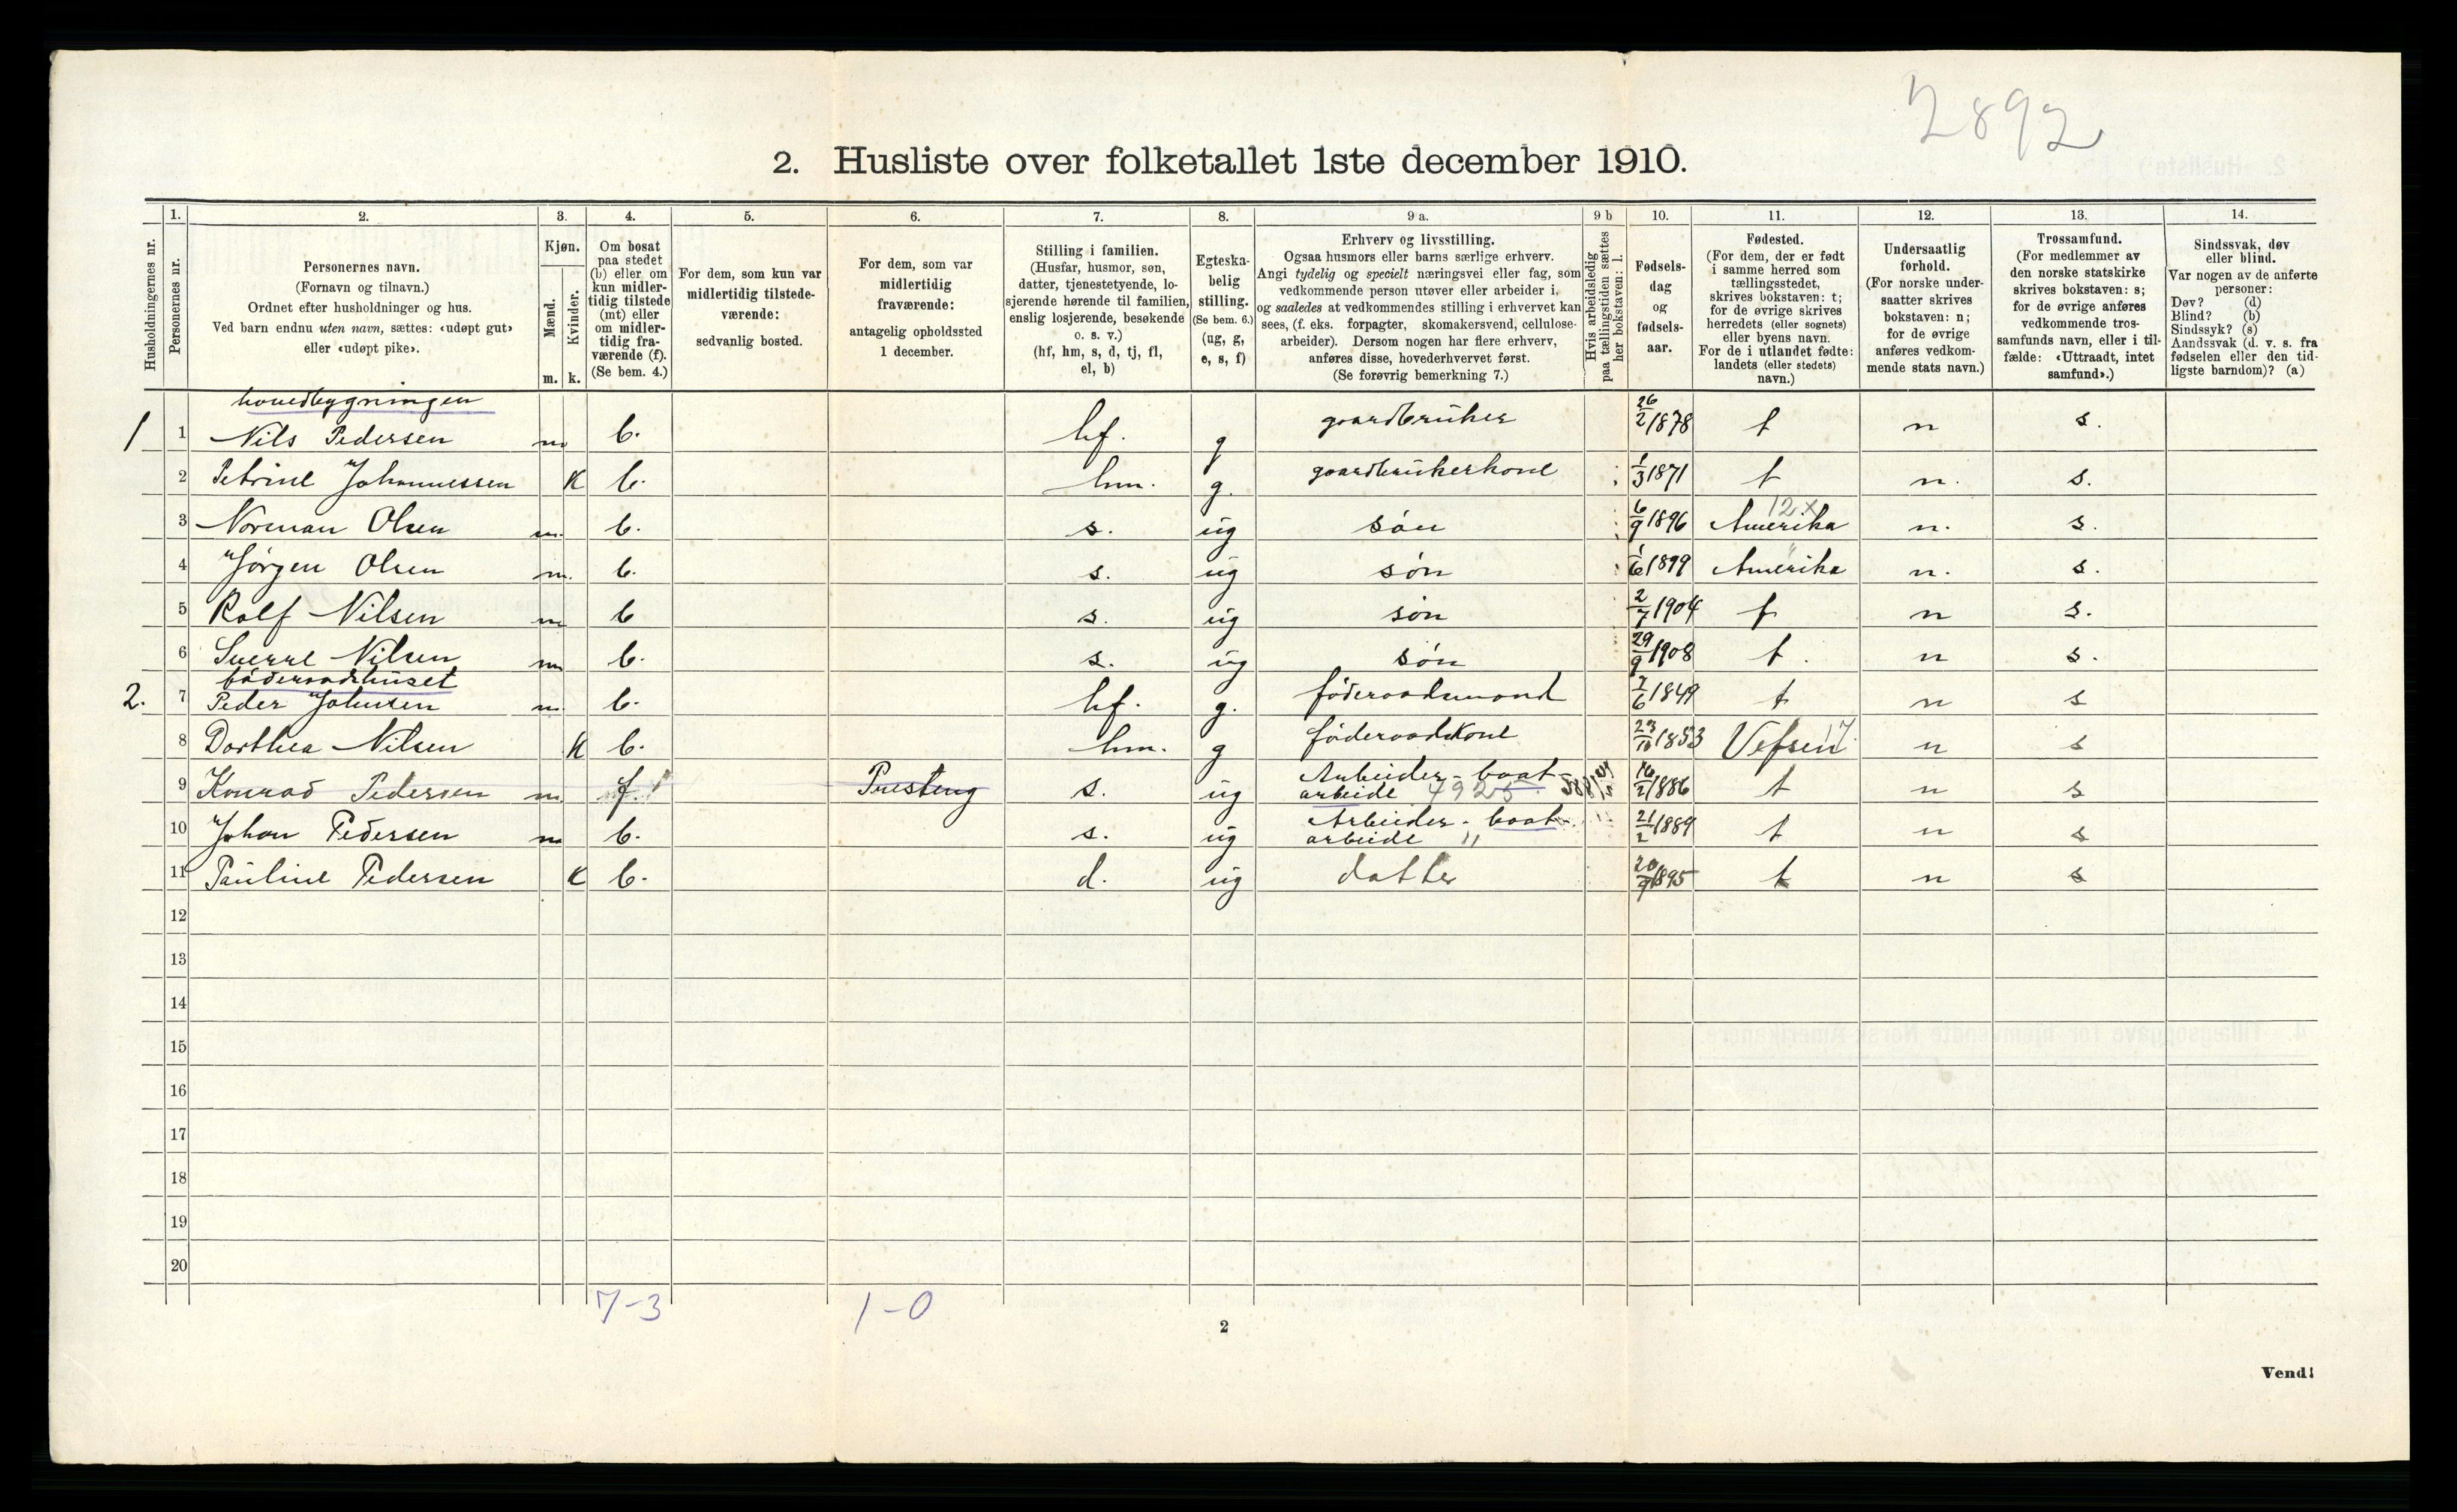 2892
2. Husliste over folketallet 1ste december 1910.
Husholdningernes nr.
1. Personernes nr.
2. Personernes navn. (Fornavn og tilnavn.) Ordnet efter husholdninger og hus. Ved barn endnu uten navn, sættes: «udøpt gut» eller «udøpt pike».
3. Kjøn. Mænd. m. Kvinder. k.
4. Om bosat paa stedet (b) eller om kun midler-tidig tilstede (mt) eller om midler-tidig fra-værende (f). (Se bem. 4.)
5. For dem, som kun var midlertidig tilstede-værende: sedvanlig bosted.
6. For dem, som var midlertidig fraværende: antagelig opholdssted 1 december.
7. Stilling i familien. (Husfar, husmor, søn, datter, tjenestetyende, lo-sjerende hørende til familien, enslig losjerende, besøkende o. s. v.) (hf, hm, s, d, tj, fl, el, b)
8. Egteska-belig stilling. (Se bem. 6.) (ug, g, e, s, f)
9 a. Erhverv og livsstilling. Ogsaa husmors eller barns særlige erhverv. Angi tydelig og specielt næringsvei eller fag, som vedkommende person utøver eller arbeider i, og saaledes at vedkommendes stilling i erhvervet kan sees, (f. eks. forpagter, skomakersvend, cellulose-arbeider). Dersom nogen har flere erhverv, anføres disse, hovederhvervet først. (Se forøvrig bemerkning 7.)
9 b Hvis arbeidsledig paa tællingstiden sættes her bokstaven: l.
10. Fødsels-dag og fødsels-aar.
11. Fødested. (For dem, der er født i samme herred som tællingsstedet, skrives bokstaven: t; for de øvrige skrives herredets (eller sognets) eller byens navn. For de i utlandet fødte: landets (eller stedets) navn.)
12. Undersaatlig forhold. (For norske under-saatter skrives bokstaven: n; for de øvrige anføres vedkom-mende stats navn.)
13. Trossamfund. (For medlemmer av den norske statskirke skrives bokstaven: s; for de øvrige anføres vedkommende tros-samfunds navn, eller i til-fælde: «Uttraadt, intet samfund».)
14. Sindssvak, døv eller blind. Var nogen av de anførte personer: Døv? (d) Blind? (b) Sindssyk? (s) Aandssvak (d. v. s. fra fødselen eller den tid-ligste barndom)? (a)
hovedbygningen
1 1 Nils Pedersen m b. hf. g gaardbruker 26/2 1878 t n s.
2 Petrine Johannessen K b. hm. g. gaardbrukerkone 1/3 1871 t n. s.
3 Norman Olsen m. b. s. ug søn 6/9 1896 Amerika 12 x n. s.
4 Jørgen Olsen m. b. s. ug søn 1/6 1899 Amerika " n. s.
5 Rolf Nilsen m b s. ug søn 2/7 1904 t n s.
6 Sverre Nilsen m b. s. ug søn 29/9 1908 t. n s.
föderaadshuset
2. 7 Peder Johnsen m. b. hf. g. föderaadsmand 7/6 1849 t n s
8 Dorthea Nilsen K b. hm. g föderaadkone 23/10 1853 Vefsen 17 n s
9 Konrad Pedersen m. f. Presteng s. ug Arbeider - baat-arbeide 7925 16/2 1886 t n s
10 Johan Pedersen m b. s. ug Arbeider - baat-arbeide " 21/2 1889 t n s
11 Pauline Pedersen K b. d. ug datter 20/9 1895 t n s
12
13
14
15
16
17
18
19
20
7-3 1-0
2
Vend!